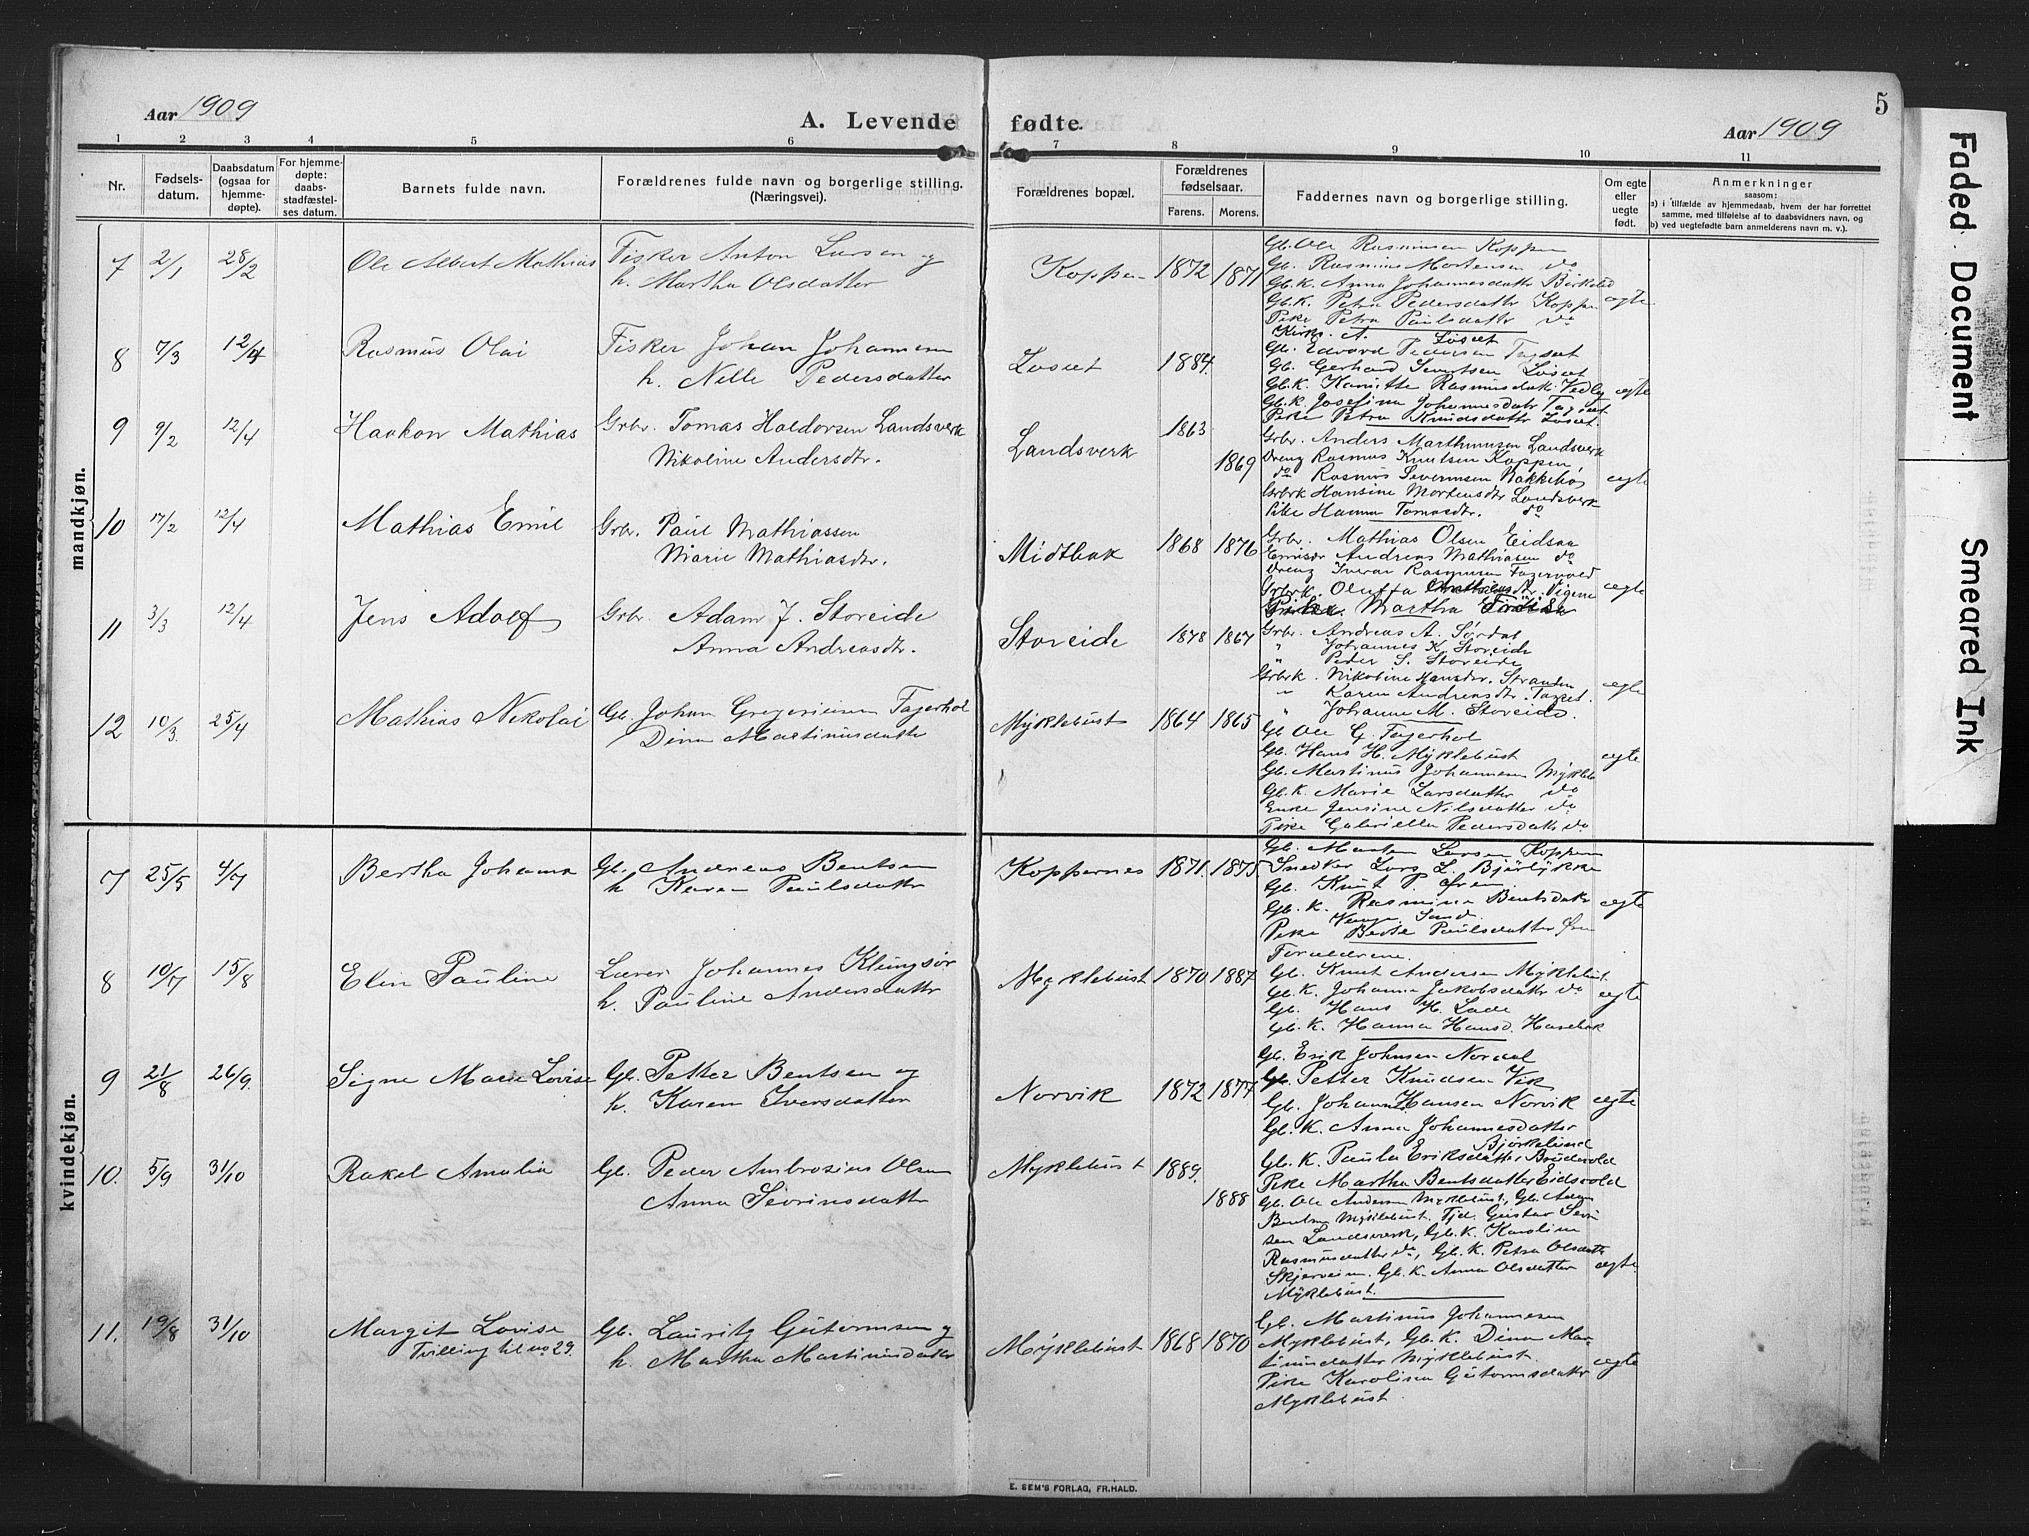 5
Aar 1909
A. Levende
fødte.
Aar 1909
1 2 3 4 5 6 7 8 9 10 11
Nr.
Fødsels-
datum.
Daabsdatum
(ogsaa for
hjemme-
døpte).
For hjemme-
døpte:
daabs-
stadfæstel-
ses datum.
Barnets fulde navn.
Forældrenes fulde navn og borgerlige stilling.
(Næringsvei).
Forældrenes bopæl.
Forældrenes
fødselsaar.
Farens. Morens.
Faddernes navn og borgerlige stilling.
Om egte
eller
uegte
født.
Anmerkninger
saasom:
a) i tilfælde av hjemmedaab, hvem der har forrettet
samme, med tilføielse af to daabsvidners navn, og
b) ved uegtefødte barn anmelderens navn m. v.).
mandkjøn.
7 2/1 28/2 Ole Albert Mathias
Fisker Anton Larsen og
h. Martha Olsdatter
Koppen 1872 1871
Gb. Ole Rasmussen Koppen
Gb. Rasmine Mortensen do
Gb.K. Anna Johannesdatter Birkelid
Gb.K. Petra Pedersdatter Koppen
Pike Petra Paulsdatter do
egte
8 7/3 12/4 Rasmus Olai
Fisker Johan Johannesen
h. Nelle Pedersdatter
Løset 1884.
Kirks. A. Løset
Gb. Edvard Pedersen
Gb. Gerhard Severtsen Løset
Gb.K. Rasmusdatr. Vedlg
Gb.K. Josefina Johannesdatr
Pike Petra Knudsdatter Løset.
egte
9 9/2 12/4 Haakon Mathias
Grbr. Tomas Haldorsen Landsverk
Nikoline Andersdtr.
Landsverk 1863 1869
Grbr. Anders Marthinusen Landsverk
Dreng Rasmus Knutsen Koppen,
do Rasmus Severinsen Bakkebø
Grbrk Hansine Mortensdtr Landsverk
Pike Hanna Tomasdtr. do
egte
10 17/2 12/4 Mathias Emil
Grbr. Paul Mathiassen
Marie Mathiasdtr.
Midtbak 1868 1876
Grbr. Mathias Olsen Eidsaa
Andreas Mathiasen do
Dreng Iveran Rasmusen Fagervold
Grbrk. Oluffa
Martha
egte
11 3/3 12/4 Jens Adolf
Grbr. Adam J. Storeide
Anna Andreasdtr.
Storeide 1878 1867
Grbr. Andreas A. Sørdal
" Johannes K. Storeide
" Peder S. Storeide
Grbrk. Nikoline Hansdtr. Stranden
" Karen Andreasdtr.
" Johanne M. Storeide.
egte
12 10/3. 25/4 Mathias Nikolai
Gb. Johan Gregeriusen Fagerhol
Dina Martinusdatter
Myklebust 1864 1865
Gb Ole G. Fagerhol
Gb. Hans H. Myklebust
Gb. Martinus Johannesen Mykleb
Gb.K. Marie Larsdatter do
Enke Jensine Nilsdatter do
Pike Gabriella Pedersdatr do
egte
kvindekjøn.
7 25/5 4/7 Bertha Johanna
Gb. Andreas Bentsen
h Karen Paulsdatter
Koppernes 1871. 1875
Gb. Morten Larsen Koppen
Snedker Lars L. Bjørlykke
Gb. Knut P. Ørem
Gb. K. Rasmina Bentsdatr
Sand.
Pike Berte Paulsdatter Ørem
egte
8 10/7 15/8 Elin Pauline
Lærer Johannes Klungsør
h. Pauline Andersdatter
Myklebust 1870 1887
Forældrene.
Gb. Knut Andersen Myklebust
Gb.K. Johanna Jakobsdatter do
Gb. Hans H. Lade
Gb.K. Hanna Hansd.
egte
9 21/8 26/9. Signe Marie Lovise
Gb. Petter Bentsen og
h. Karen Iversdatter
Norvik 1872 1877
Gb. Erik Johnsen Nordal
Gb. Petter Knudsen Vik
Gb. Johannes Hansen Norvik
Gb.K. Anna Johannesdatter
Bjørkelund
Gb.K. Paula Eriksdatter
Pike Martha Bentsdatter Eidsvold
egte
10. 5/9 31/10 Rakel Amalia
Gb. Peder Ambrosius Olsen
Anna Sevrinsdatter
Myklebust 1889. 1888
Gb. Ole Andersen Myklebust, Gb.
Bentsen Myklebust. Tjd. Gustav Sevrin
sen Landsverk, Gb.K. Karoline
Rasmusdatter do, Gb.K. Petra Olsdatter
Skjerveim. Gb.K. Anna Olsdatter
Myklebust.
egte.
11. 19/8 31/10 Margit Lovise
Tvilling til no 29.
Gb. Lauritz Gutormsen og
h. Martha Martinusdatter
Myklebust 1868 1870
Gb. Martinus Johannesen
Myklebust, Gb.K. Dina Mar-
tinusdatter Myklebust.
Pike Karolina Gutormsdatter
Myklebust.
egte
E. SEM'S FORLAG, FR.HALD.
Faded Document
Smeared Ink